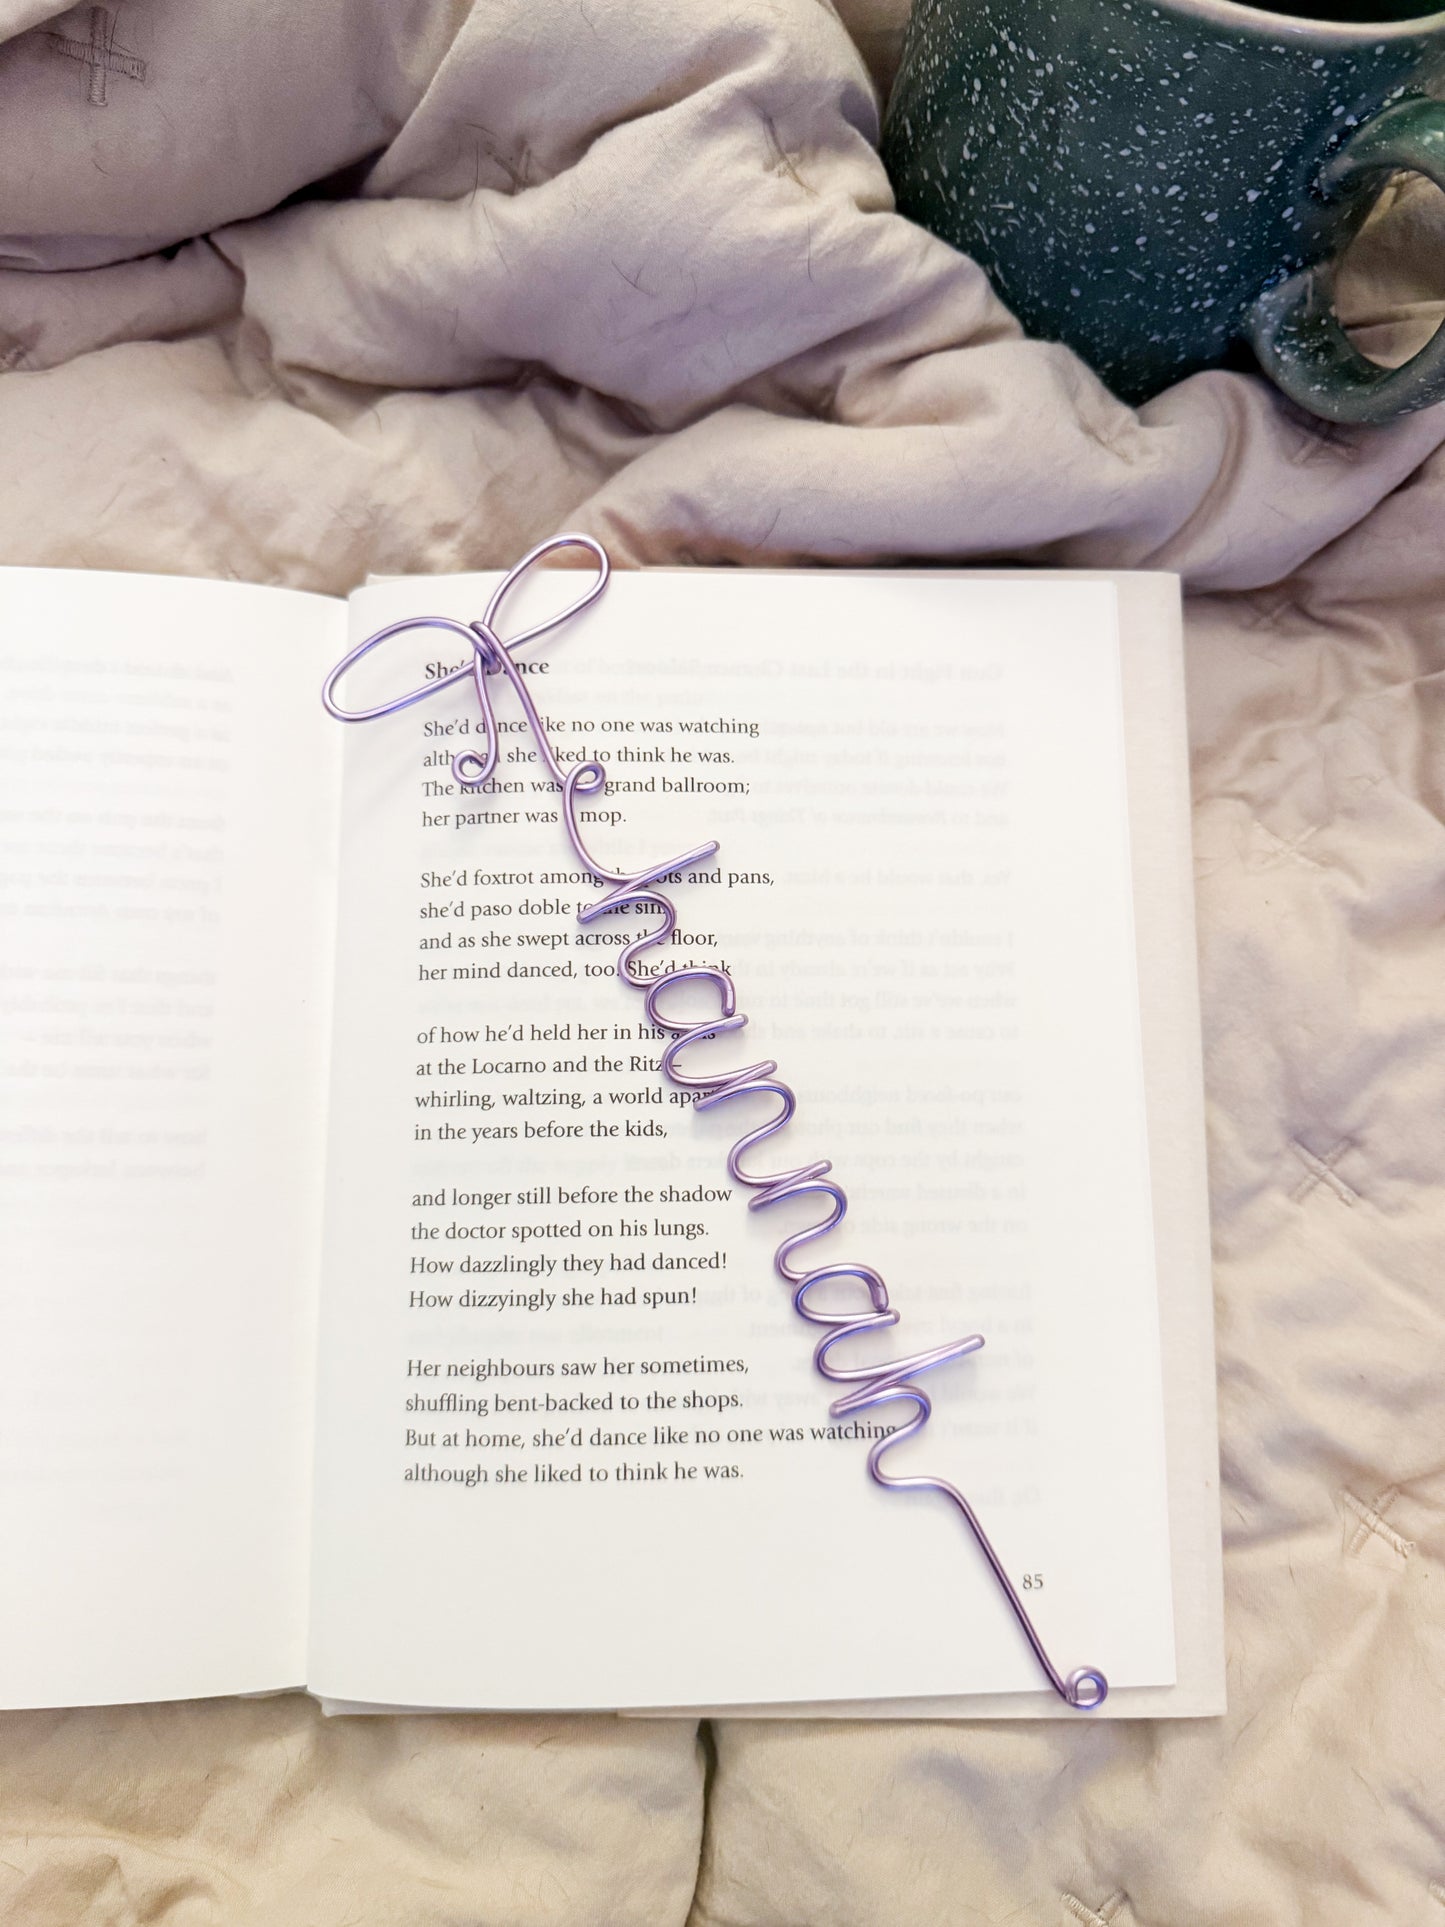 She'd Dance
She'd dance like no one was watching
although she liked to think he was.
The kitchen was grand ballroom;
her partner was mop.
She'd foxtrot among the pots and pans,
she'd paso doble to the sink
and as she swept across the floor,
her mind danced, too. She'd think
of how he'd held her in his arms
at the Locarno and the Ritz –
whirling, waltzing, a world apart
in the years before the kids,
and longer still before the shadow
the doctor spotted on his lungs.
How dazzlingly they had danced!
How dizzyingly she had spun!
Her neighbours saw her sometimes,
shuffling bent-backed to the shops.
But at home, she'd dance like no one was watching
although she liked to think he was.
85
hannah